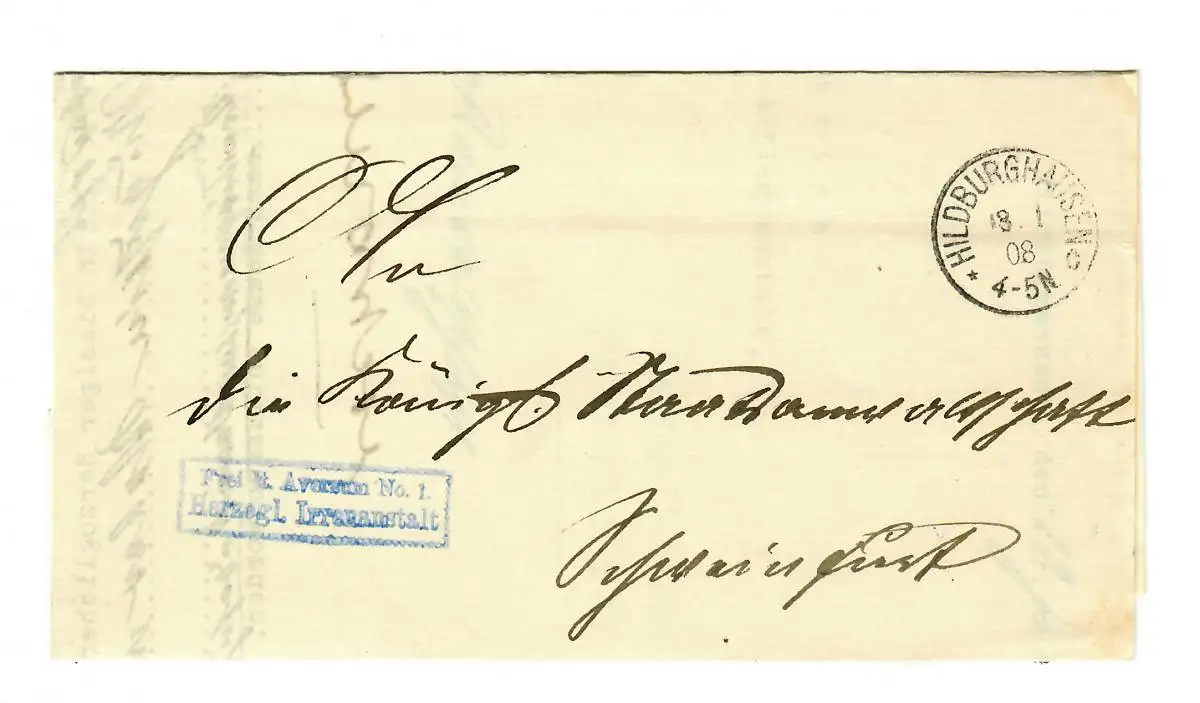 An
die Königl. Staatsanwaltschaft
Schweinfurt
HILDBURGHAUSEN
1
08
4-5N
* c
Frei lt. Aversum No. 1.
Herzogl. Irrenanstalt